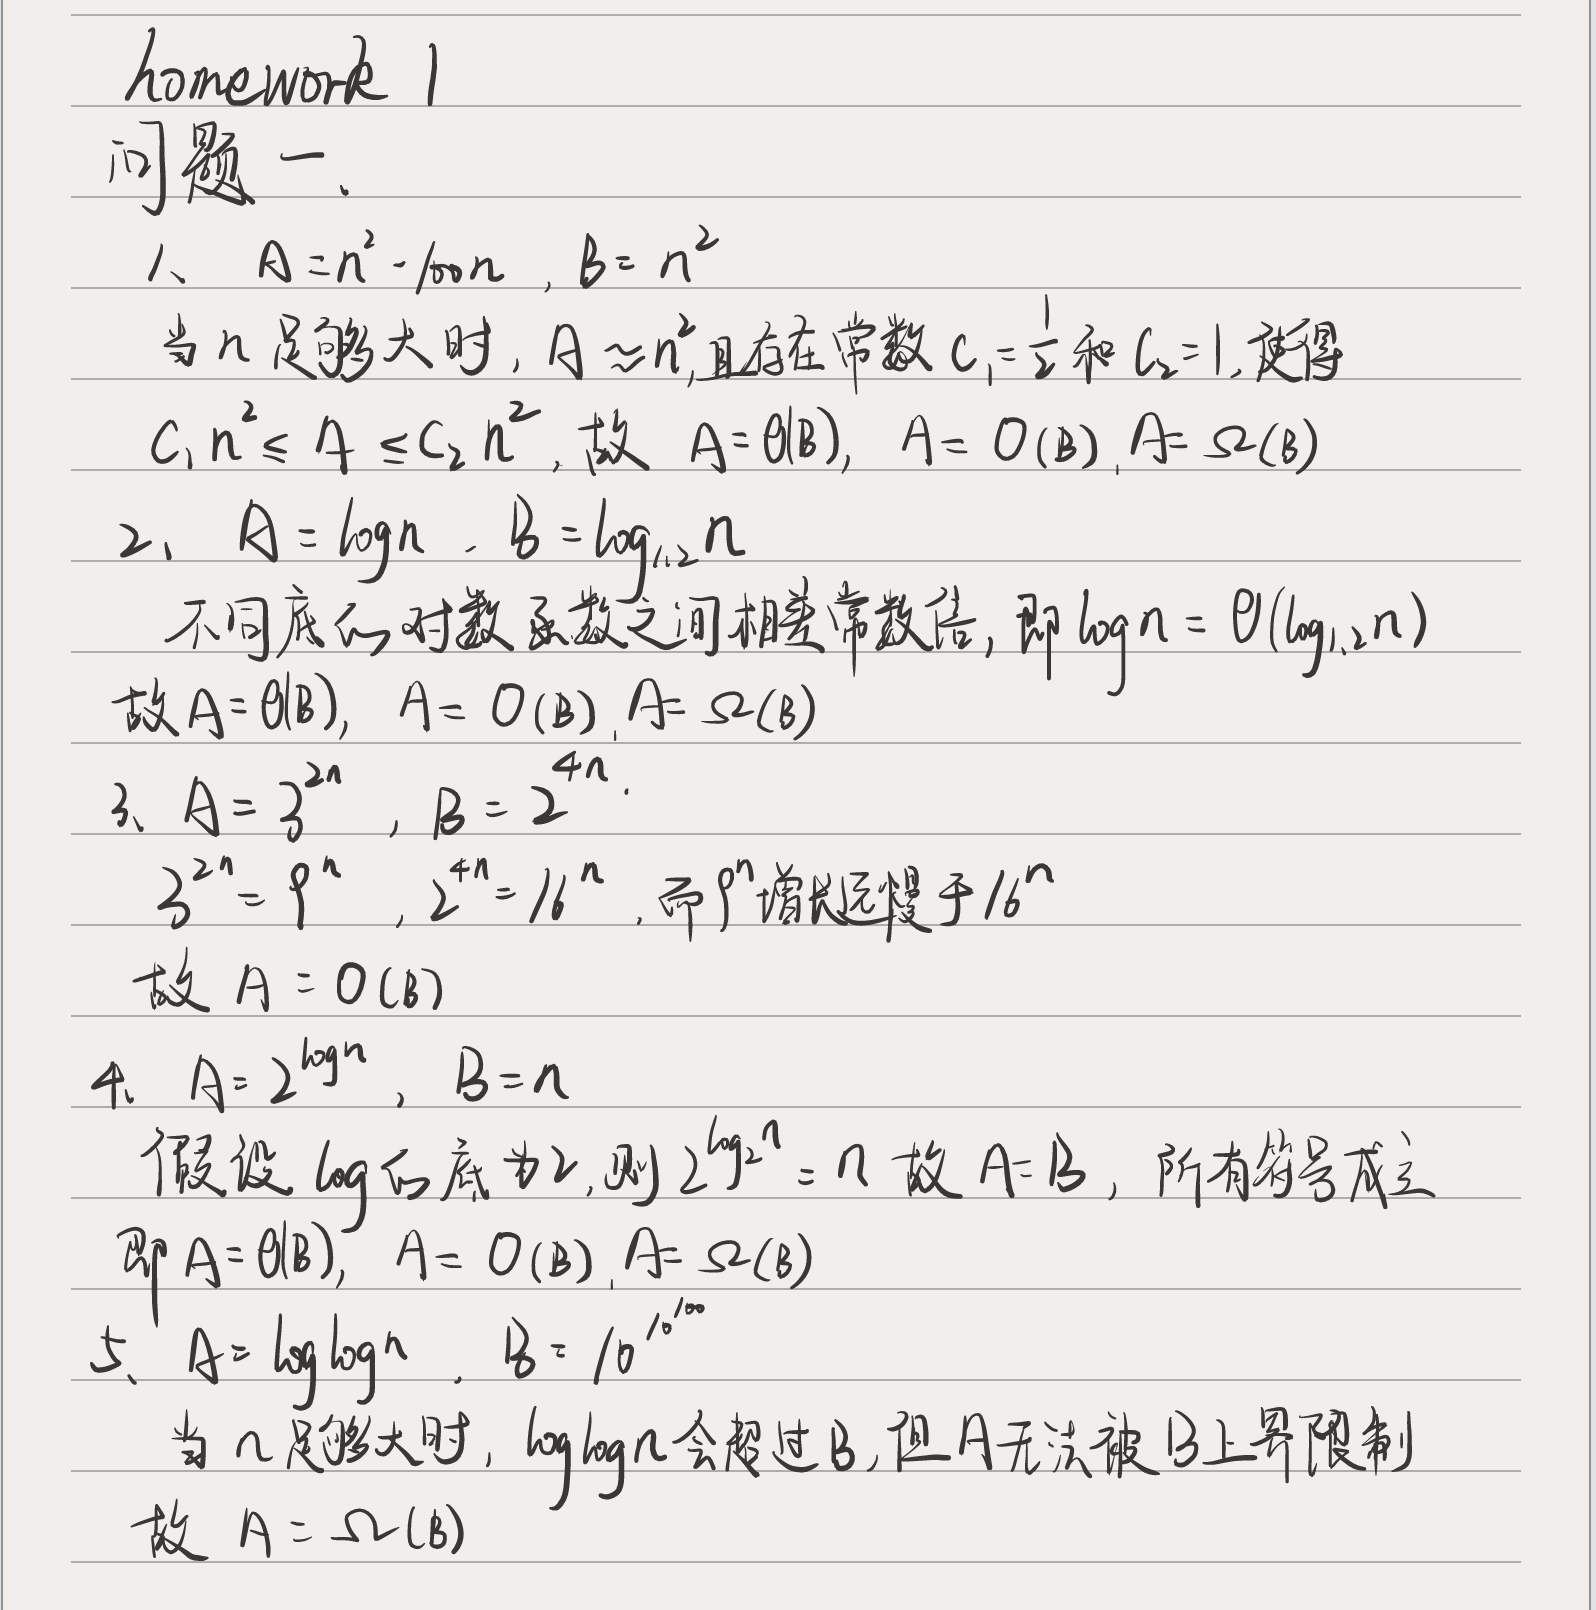 homework 1
问题一、
1、 A=n²-100n , B=n²
当n足够大时, A≈n²,且存在常数C₁=1/2和C₂=1,使得
C₁n²≤A≤C₂n²,故 A=θ(B), A=O(B),A=Ω(B)
2、 A=logn . B=log₁.₂n
不同底的对数函数之间相差常数倍,即logn=θ(log₁.₂n)
故A=θ(B), A=O(B),A=Ω(B)
3、A=3²ⁿ , B=2⁴ⁿ.
3²ⁿ=9ⁿ ,2⁴ⁿ=16ⁿ ,而9ⁿ增长远慢于16ⁿ
故 A=O(B)
4、 A=2^logn , B=n
假设log的底为2,则2^log₂n=n 故 A=B, 所有符号成立
即A=θ(B), A=O(B),A=Ω(B)
5、 A=loglogn . B=10^10^100
当n足够大时,loglogn会超过B,但A无法被B上界限制
故 A=Ω(B)